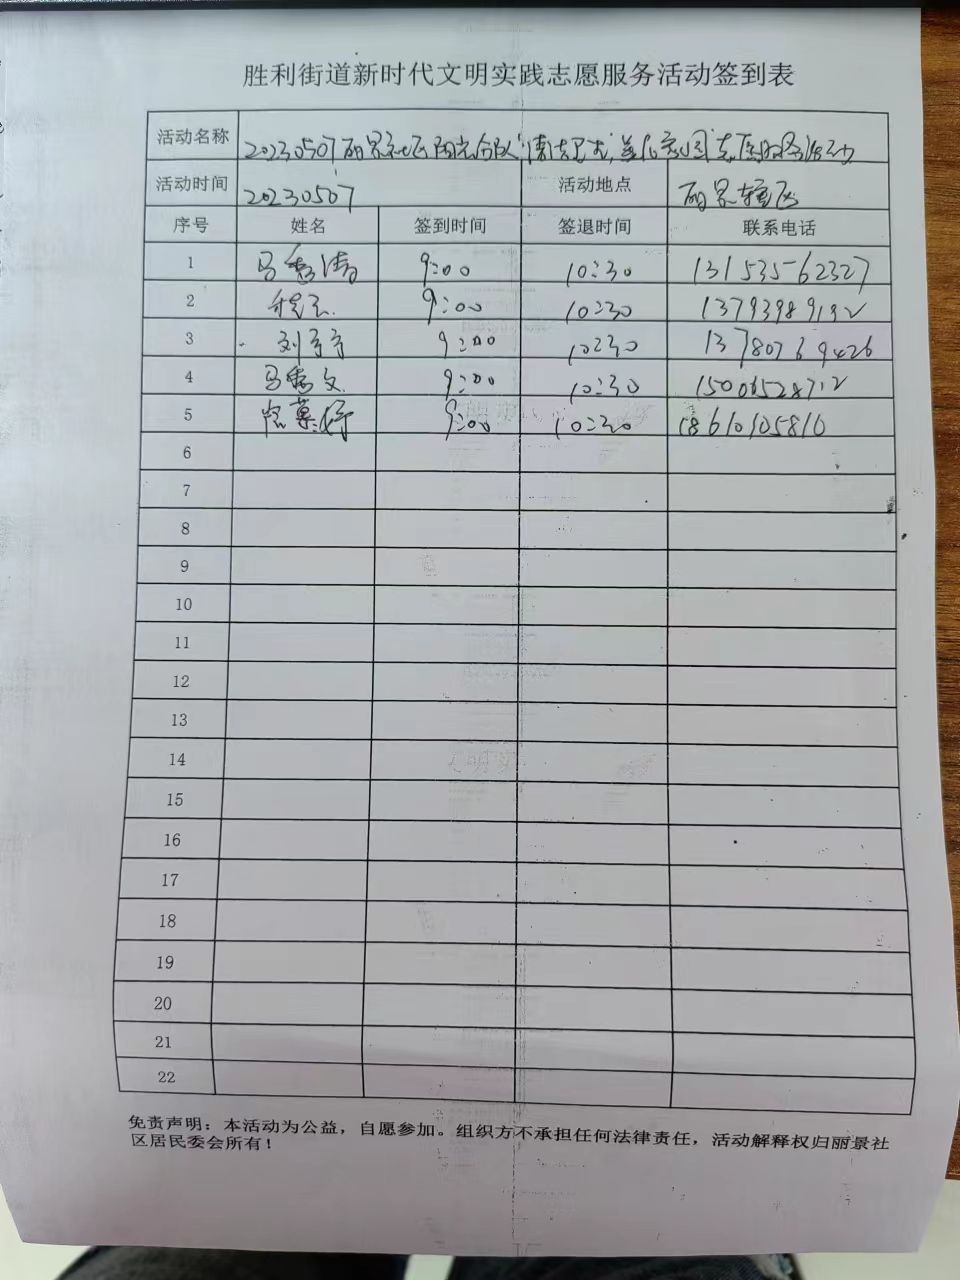 胜利街道新时代文明实践志愿服务活动签到表
活动名称 20230507丽景社区阳光分队"清洁卫士,美化家园"志愿服务活动
活动时间 20230507 活动地点 丽景辖区
序号 姓名 签到时间 签退时间 联系电话
1 马秀清 9:00 10:30 13153562327
2 9:00 10:30 13793989192
3 刘宁宁 9:00 10:30 13780769426
4 马秀文 9:00 10:30 15006528712
5 9:00 10:30 18610105810
6
7
8
9
10
11
12
13
14
15
16
17
18
19
20
21
22
免责声明:本活动为公益,自愿参加。组织方不承担任何法律责任,活动解释权归丽景社
区居民委会所有!